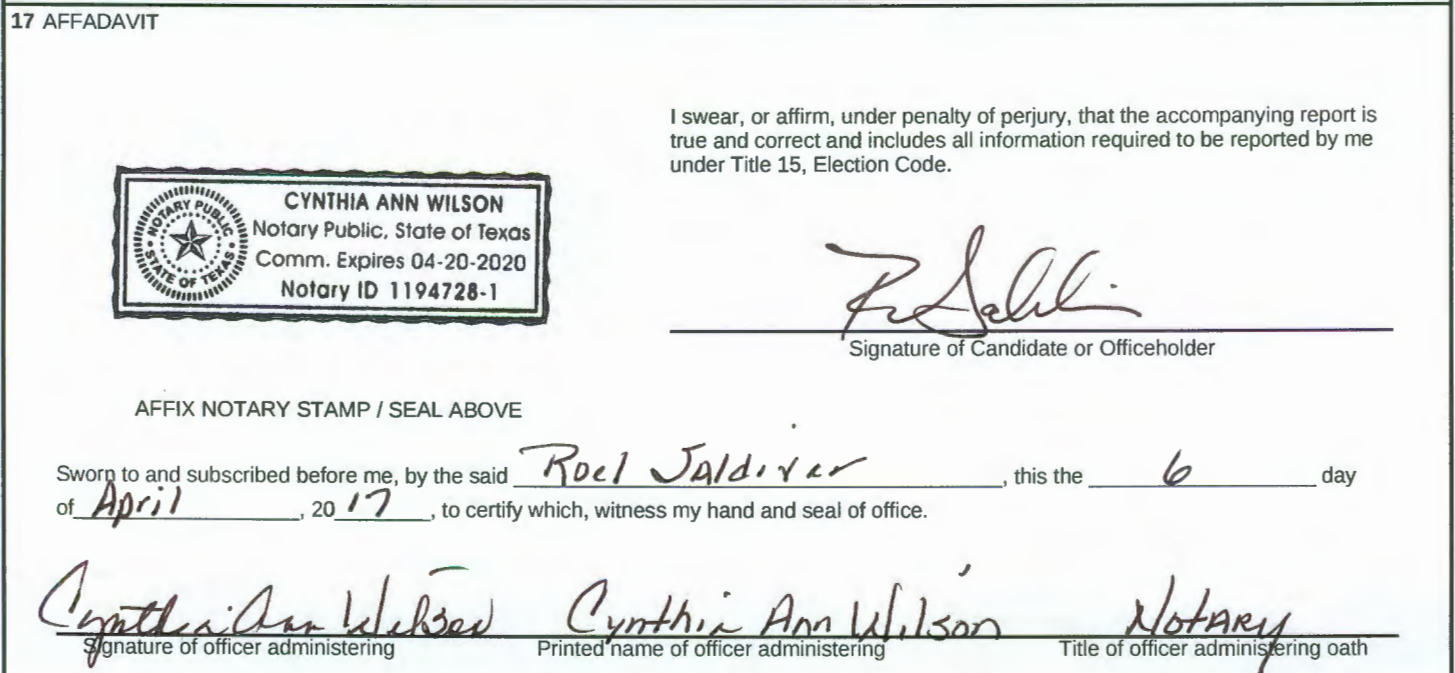 17 AFFADAVIT
I swear, or affirm, under penalty of perjury, that the accompanying report is
true and correct and includes all information required to be reported by me
under Title 15, Election Code.
NOTARY PUBLIC
STATE OF TEXAS
CYNTHIA ANN WILSON
Notary Public, State of Texas
Comm. Expires 04-20-2020
Notary ID 1194728-1
Signature of Candidate or Officeholder
AFFIX NOTARY STAMP / SEAL ABOVE
Sworn to and subscribed before me, by the said Roel Saldivar, this the 6 day
of April, 2017, to certify which, witness my hand and seal of office.
Cynthia Ann Wilson Cynthia Ann Wilson Notary
Signature of officer administering Printed name of officer administering Title of officer administering oath